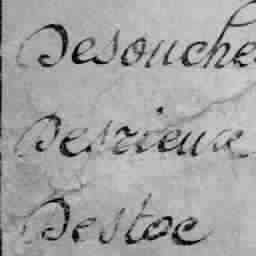 Desouche
Desrieux
Destoc